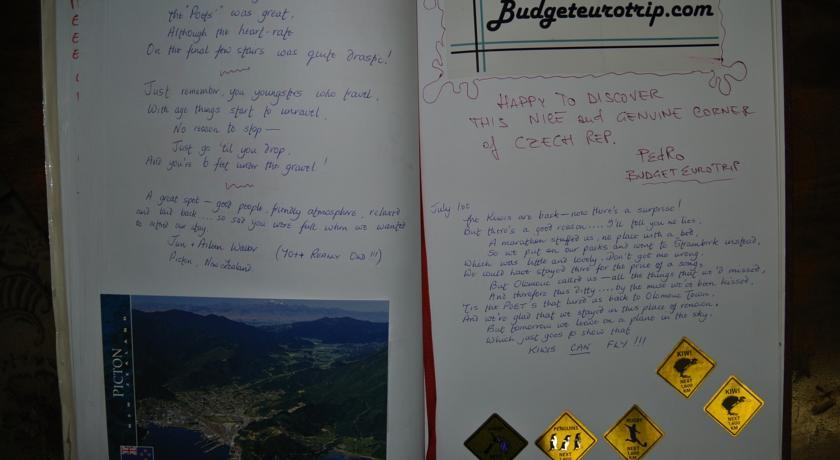 the "Poets" was great,
Although the heart-rate
On the final few stairs was quite drastic!
Just remember, you youngsters who travel,
With age things start to unravel,
No reason to stop —
Just go 'til you drop,
And you're 6 feet under the gravel!
A great spot — good people, friendly atmosphere, relaxed
and laid back... so sad you were full when we wanted
to extend our stay.
Picton, New Zealand
(70++ REALLY OLD!!!)
PICTON
NEW ZEALAND
Budgeteurotrip.com
HAPPY TO DISCOVER
THIS NICE and GENUINE CORNER
of CZECH REP.
PEdRO
BUDGETEUROTRIP
July 1st
The Kiwis are back — now there's a surprise!
But there's a good reason.... I'll tell you no lies.
A marathon stuffed us, no place with a bed,
So we put on our packs and went to Sternberk instead,
Which was little and lovely. Don't get me wrong.
We could have stayed there for the price of a song,
But Olomouc called us — all the things that we'd missed,
And therefore this ditty.... by the muse we've been kissed,
'Tis the POET'S that lured us back to Olomouc Town.
And we're glad that we stayed in this place of renown.
But tomorrow we leave on a plane in the sky.
Which just goes to show that
KIWIS CAN FLY!!!
KIWI
NEXT
1,600
KM
KIWI
NEXT
1,600
KM
PENGUINS
NEXT
1,600
KM
RUGBY
NEXT
1,600
KM